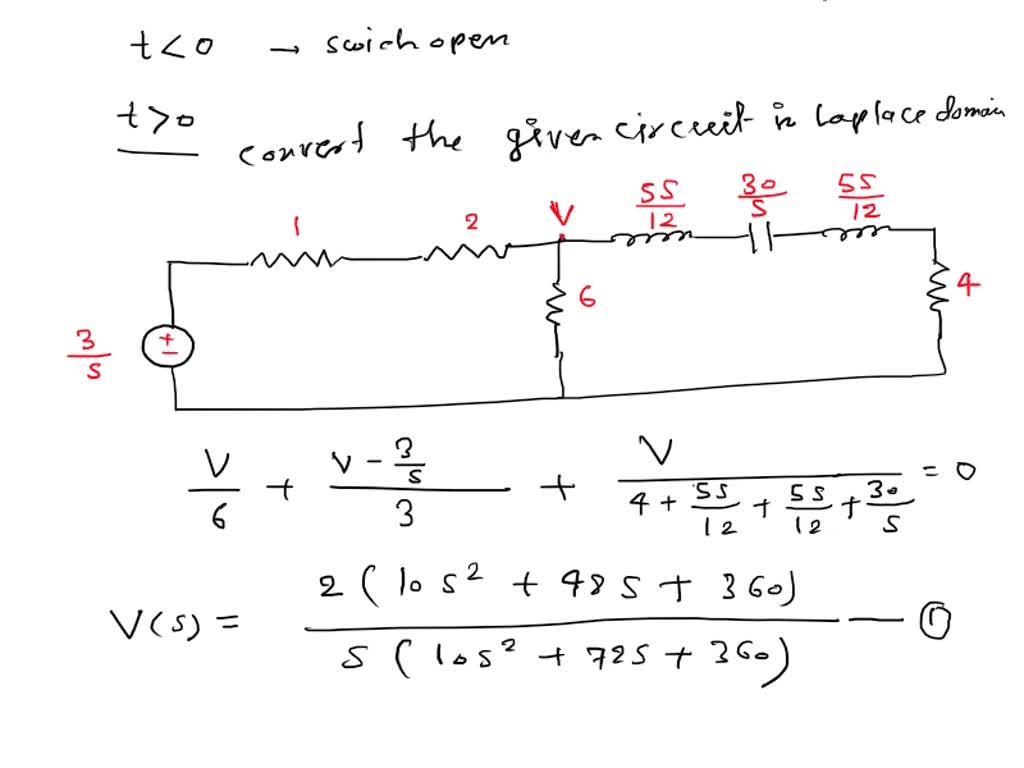 t<0 → swich open
t>0 convert the given circuit in Laplace domain
1 2 V 5s/12 30/s 5s/12
6 4
3/s + −
V/6 + (V - 3/s)/3 + V/(4 + 5s/12 + 5s/12 + 30/s) = 0
V(s) = 2(10s² + 48s + 360)/s(10s² + 72s + 360) — ①